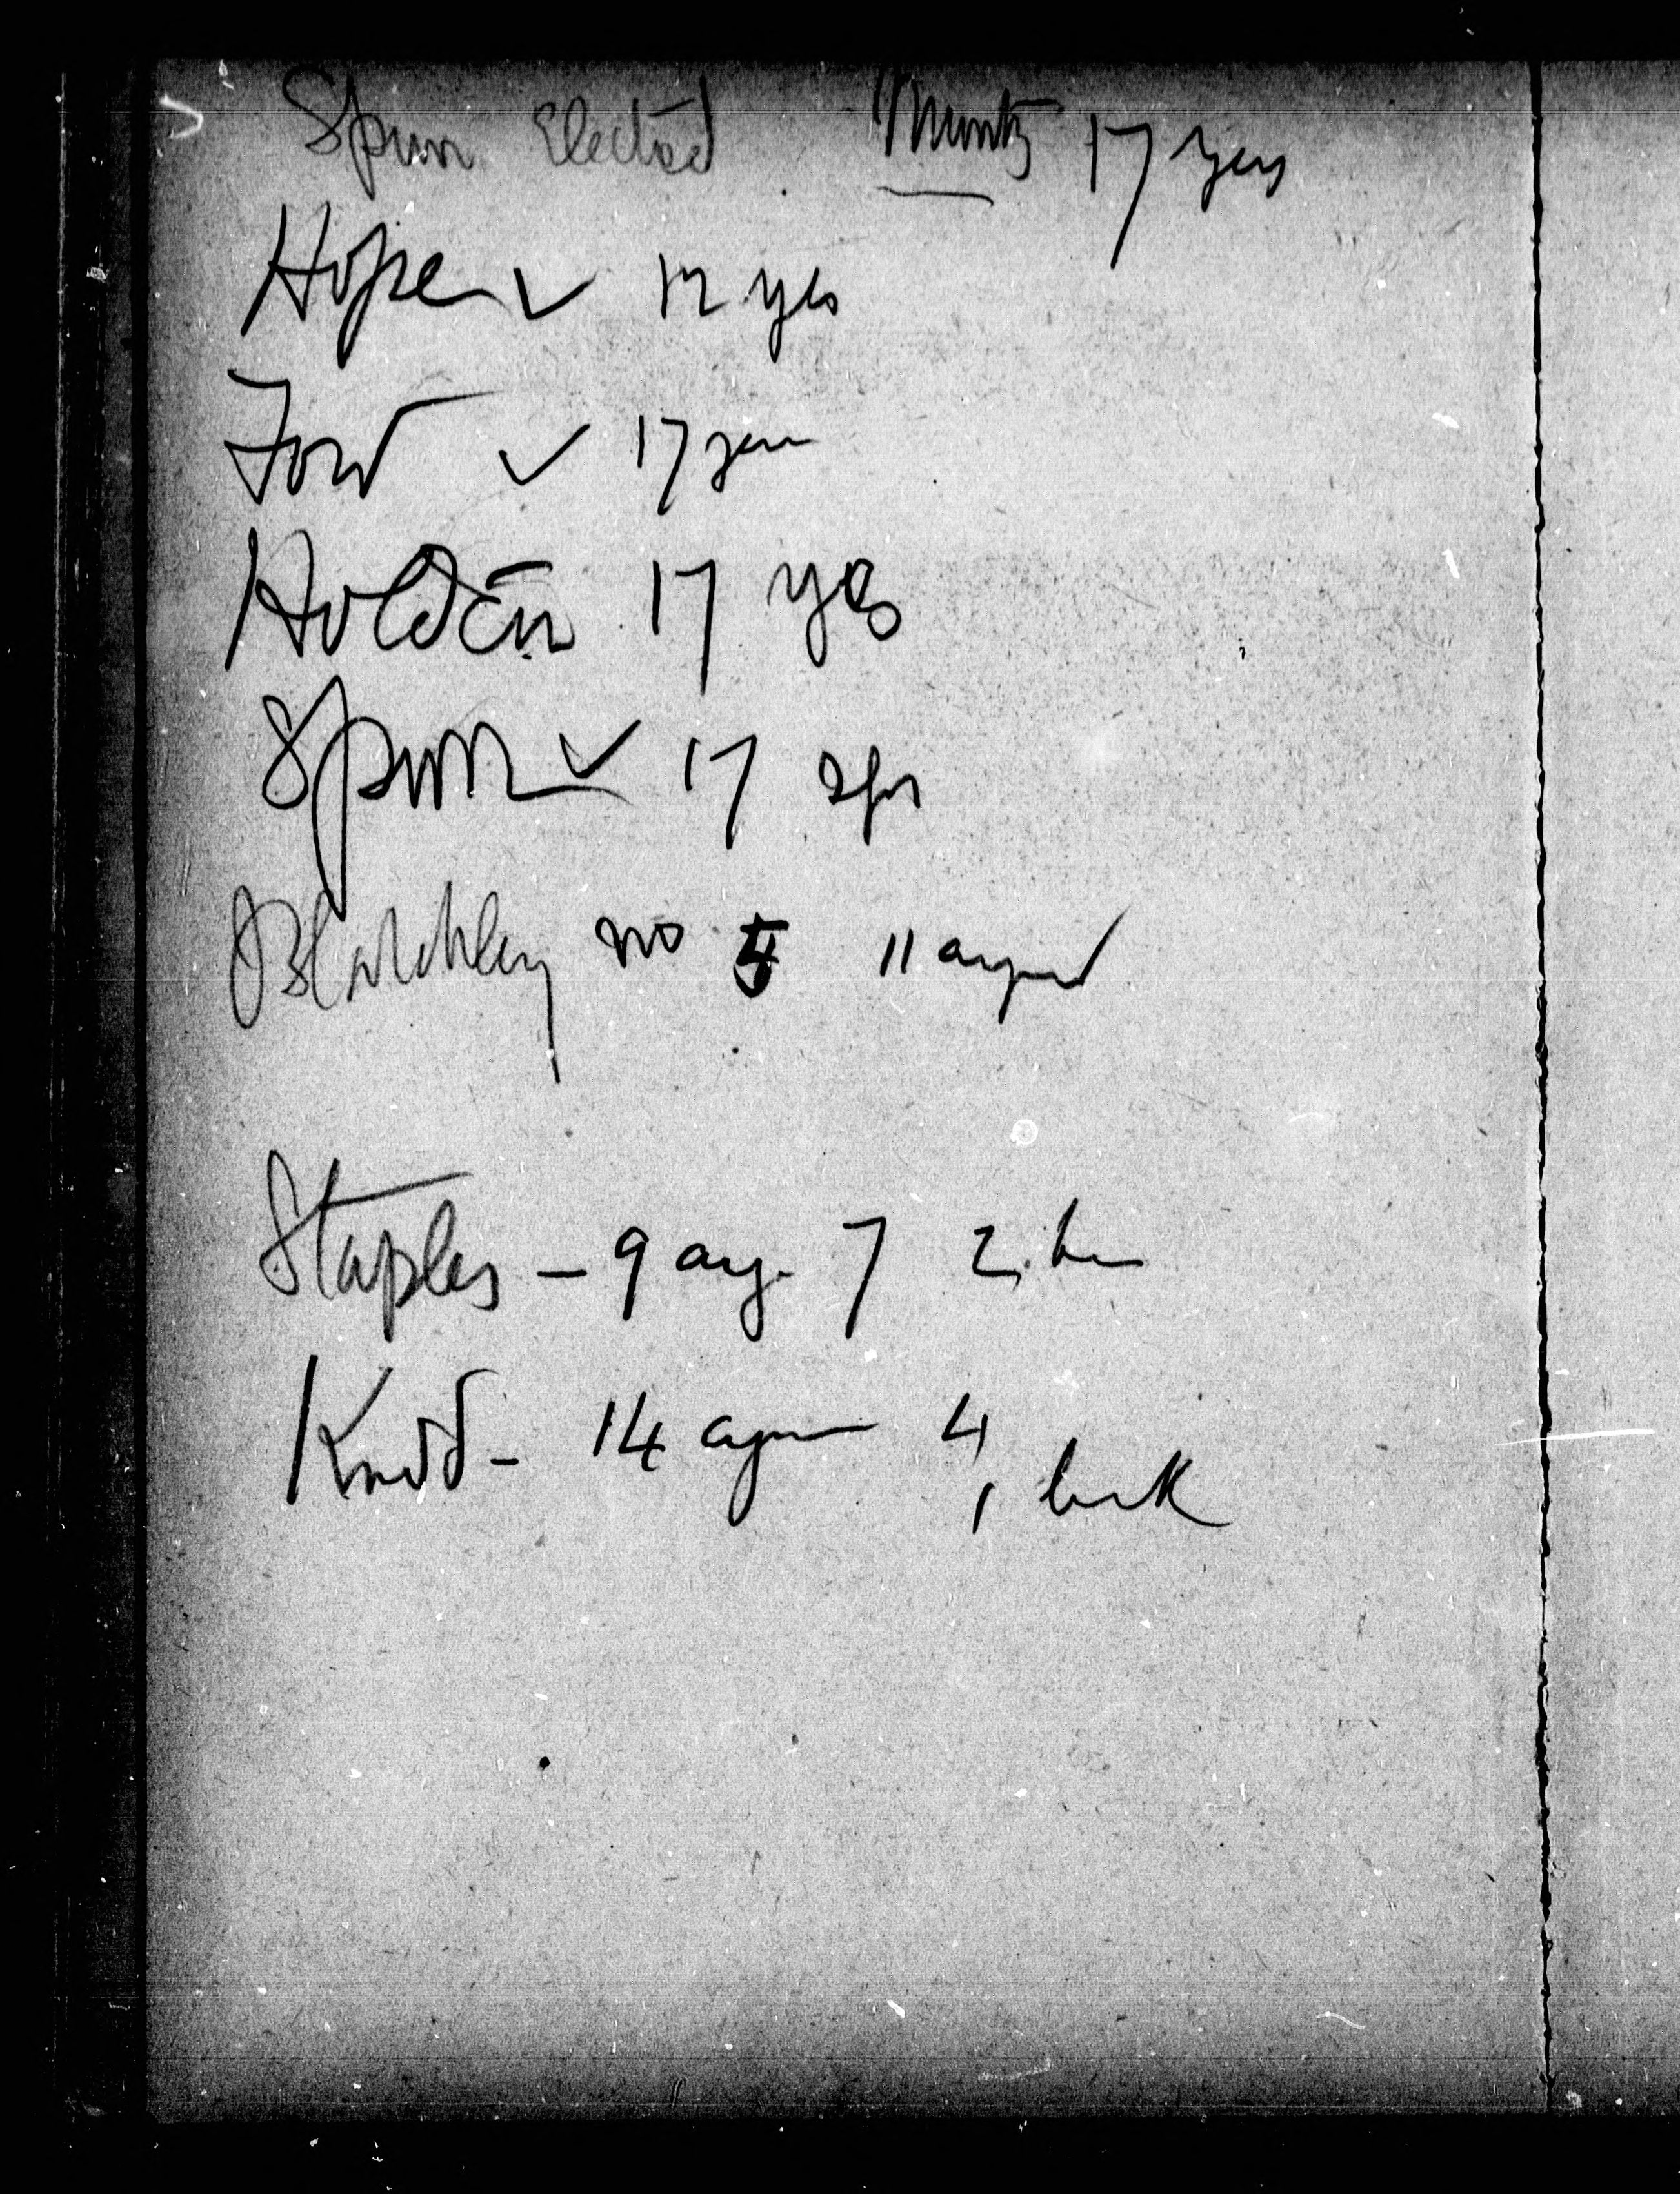 Spurr Elected Muntz 17 yes
Hope ✓ 12 yes
Ford ✓ 17 yes
Holden 17 yes
Spurr ✓ 17 yes
Blatchley no 5 11 against
Staples - 9 ag. 7 2
Kudd - 14 again 4
1 blank